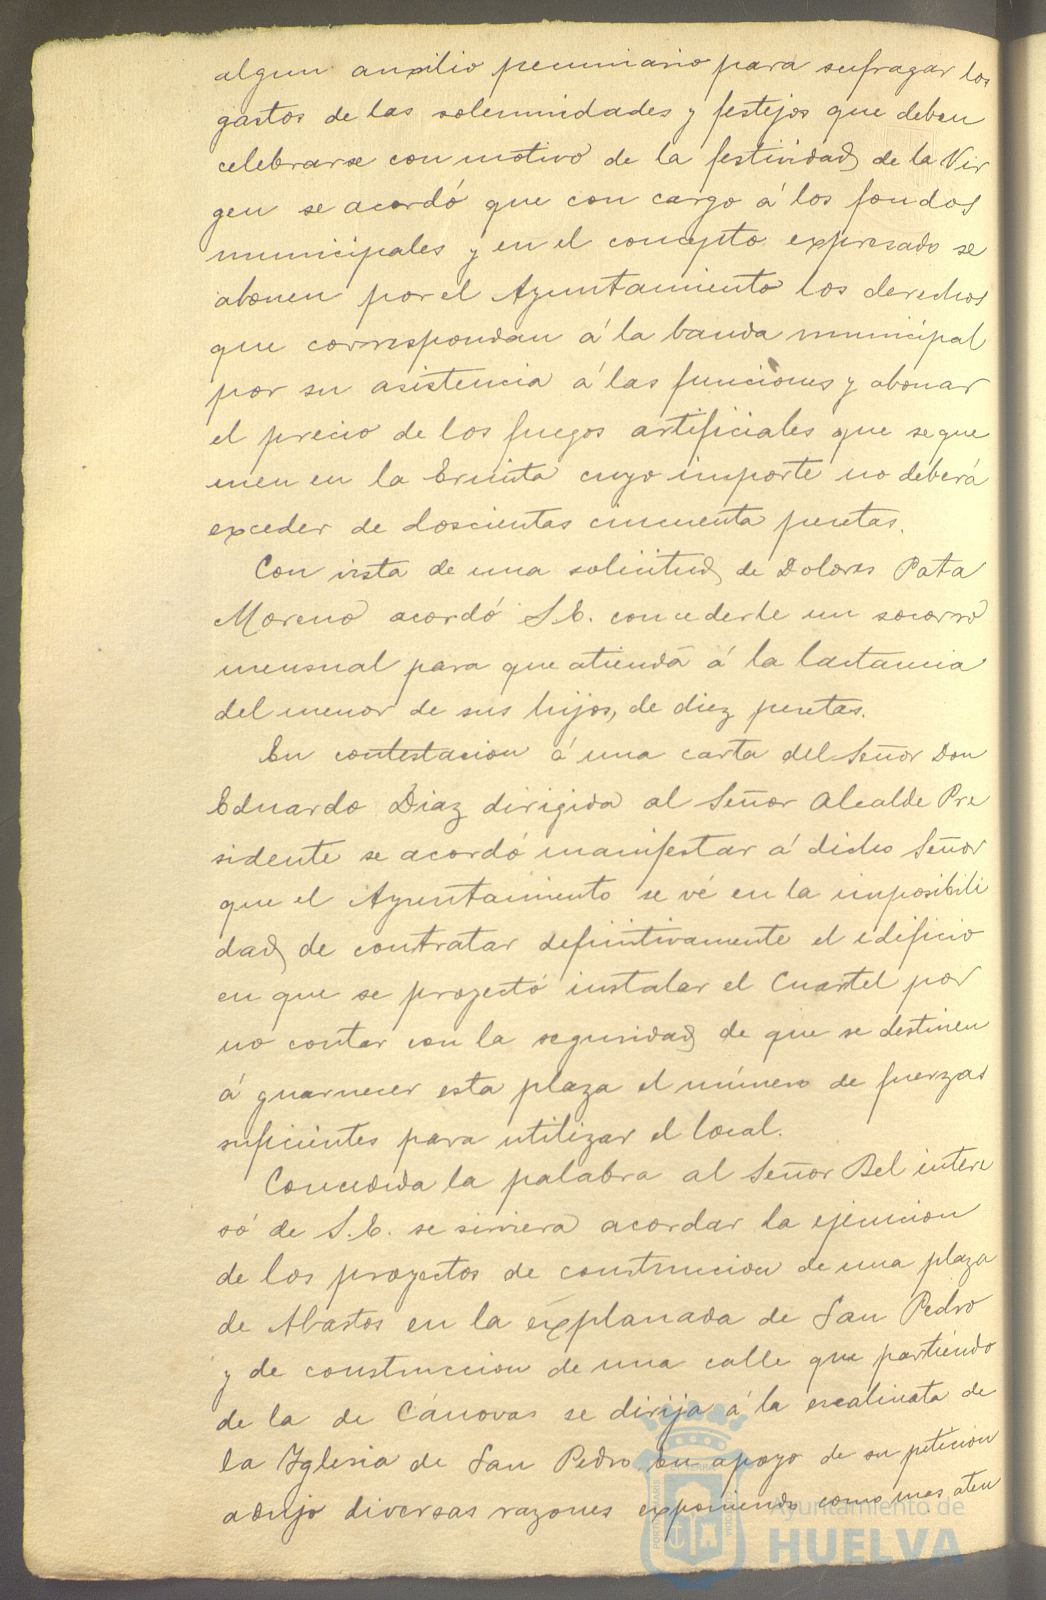 algun auxilio pecuniario para sufragar los
gastos de las solemnidades y festejos que deben
celebrarse con motivo de la festividad de la Vir
gen se acordó que con cargo á los fondos
municipales y en el concepto expresado se
abonen por el Ayuntamiento los derechos
que correspondan á la banda municipal
por su asistencia á las funciones y abonar
el precio de los fuegos artificiales que se que
men en la Ermita cuyo importe no deberá
exceder de doscientas cincuenta pesetas.
Con vista de una solicitud de Dolores Pata
Moreno acordó S.E. concederle un socorro
mensual para que atienda á la lactancia
del menor de sus hijos, de diez pesetas.
En contestacion á una carta del Señor Don
Eduardo Diaz dirigida al Señor Alcalde Pre
sidente se acordó manifestar á dicho Señor
que el Ayuntamiento se vé en la imposibili
dad de contratar definitivamente el edificio
en que se proyectó instalar el Cuartel por
no contar con la seguridad de que se destinen
á guarnecer esta plaza el número de fuerzas
suficientes para utilizar el local.
Concedida la palabra al Señor Bel intere
só de S.E. se sirviera acordar la ejecucion
de los proyectos de construccion de una plaza
de Abastos en la explanada de San Pedro
y de construccion de una calle que partiendo
de la de Cánovas se dirija á la escalinata de
la Iglesia de San Pedro. En apoyo de su peticion
adujo diversas razones exponiendo como mas aten
Ayuntamiento de
HUELVA